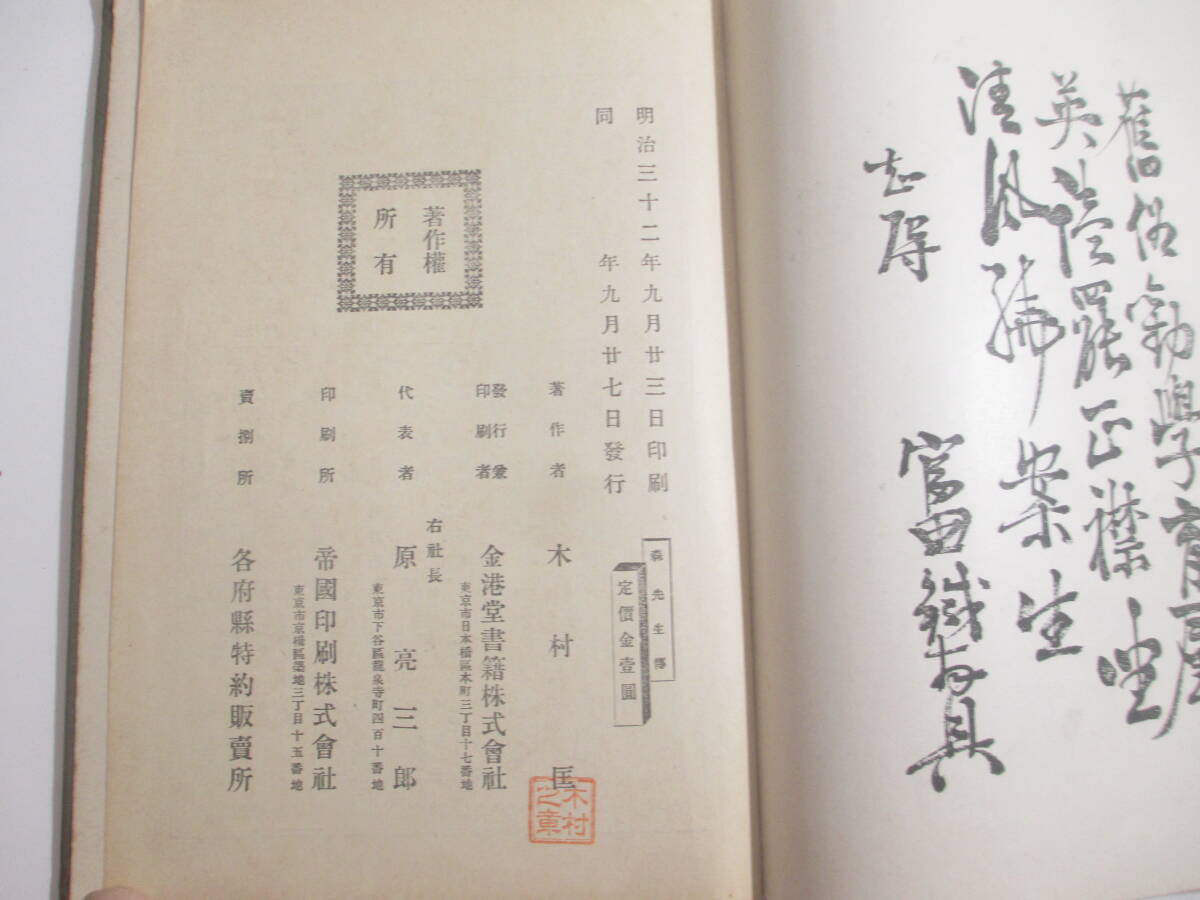 舊俗勸學育屋
英
注風
富田鐵
明治三十二年九月廿三日印刷
同年九月廿七日發行
森先生傳
定價金壹圓
著作者 木村匡
木村之章
發行兼印刷者 金港堂書籍株式會社
東京市日本橋區本町三丁目十七番地
右社長
代表者 原亮三郎
東京市下谷區龍泉寺町四百十番地
印刷所 帝國印刷株式會社
東京市京橋區築地三丁目十五番地
賣捌所 各府縣特約販賣所
著作權
所有